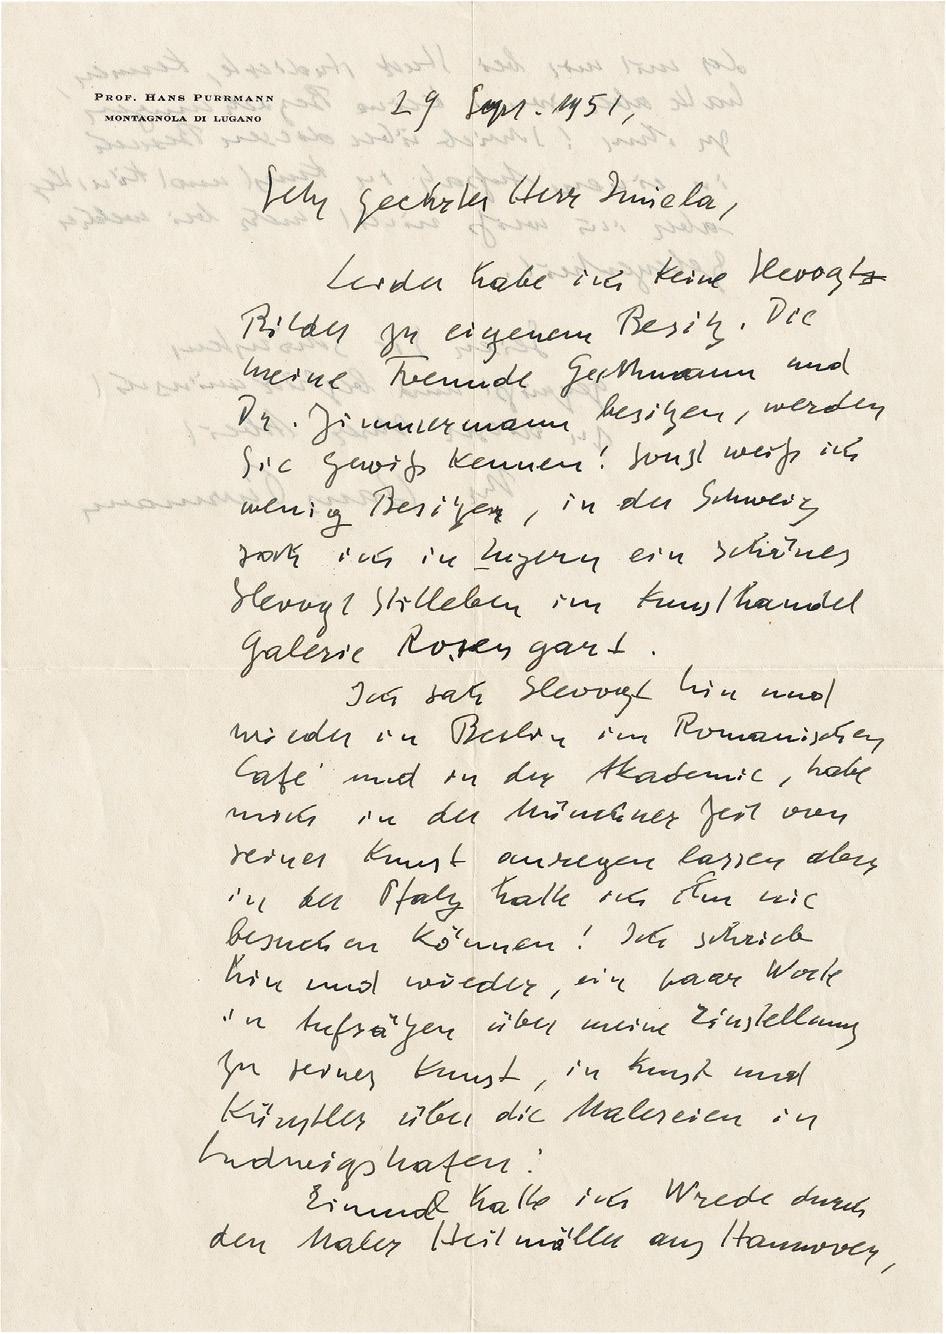 PROF. HANS PURRMANN
MONTAGNOLA DI LUGANO
29 Sept. 1951,
Sehr geehrter Herr Imiela,
Leider habe ich keine Slevogt
Bilder zu eigenem Besitz. Die
meine Freunde Gerthmann und
Dr. Zimmermann besitzen, werden
Sie gewiß kennen! Sonst weiß ich
wenig Besitzer, in der Schweiz
sah ich in Luzern ein schönes
Slevogt Stilleben im Kunsthandel
Galerie Rosengart.
Ich sah Slevogt hin und
wieder in Berlin im Romanischen
Café und in der Akademie, habe
mich in der Münchner Zeit von
seiner Kunst anregen lassen aber
in der Pfalz hatte ich ihn nie
besuchen können! Ich schrieb
hin und wieder, ein paar Worte
in Aufsätzen über meine Einstellung
zu seiner Kunst, in Kunst und
Künstler über die Malereien in
Ludwigshafen!
Einmal hatte ich Wrede durch
den Maler Heitmüller aus Hannover,